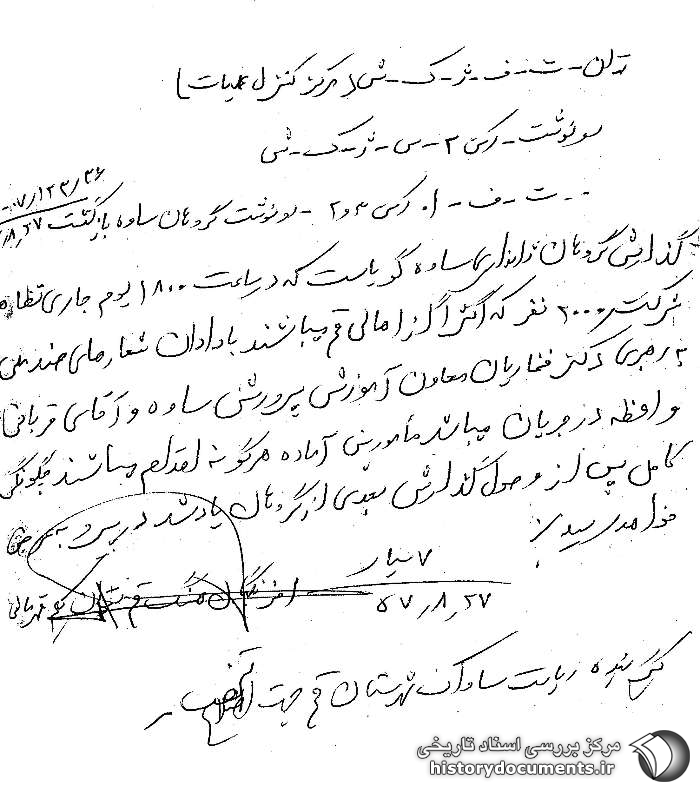 تهران - ت - ف - ژ - ک - ش (مرکز کنترل عملیات)
رونوشت - رکن ۲ - س - ژ - ک - ش
ت - ف - ا. رکن ۳ و ۲ - رونوشت گروهان ساوه بازگشت ۰۷/۱۲۳/۳۶
۸٫۲۷
گذارش گروهان ژاندارمری ساوه گویاست که در ساعت ۱۸۰۰ یوم جاری تظاهر
شرکت ۲۰۰۰ نفر که اکثراً از اهالی قم میباشند با دادن شعارهای ضد ملی
به رهبری دکتر غفاریان معاون آموزش پرورش ساوه و آقای قربانی
و افظه در جریان میباشد مأمورین آماده هرگونه اقدام میباشند چگونگی
کامل پس از وصول گذارش بعدی از گروهان یاد شده
خواهد رسید
۷ سیار
۵۷٫۸٫۲۷
از هنگ قم
گیرنده ریاست ساواک شهرستان قم جهت
مرکز بررسی اسناد تاریخی
historydocuments.ir